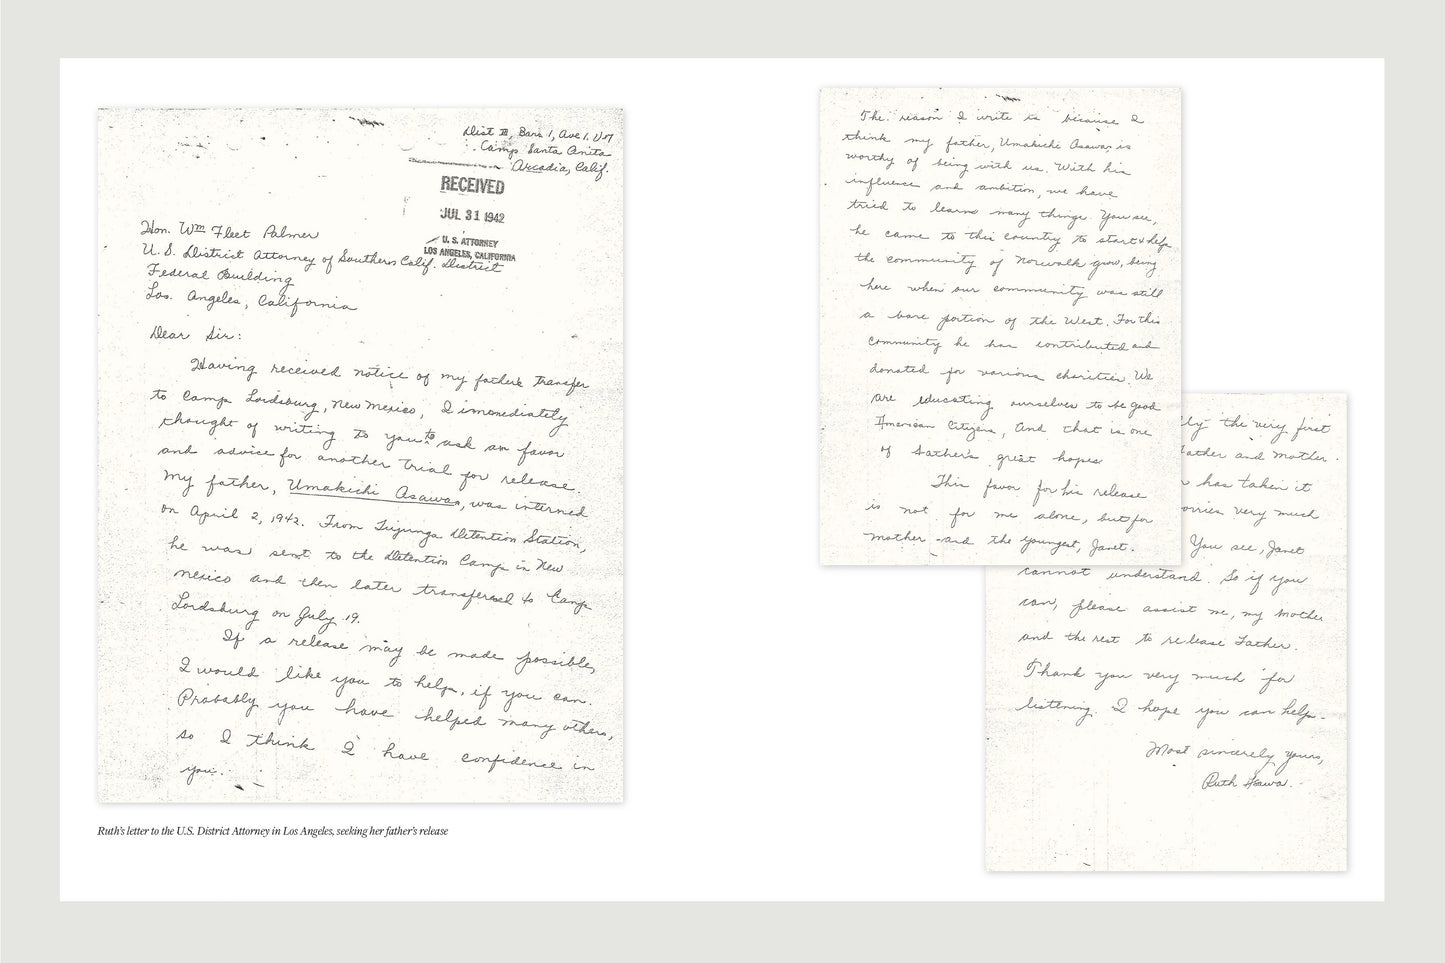 Dist III, Bars 1, Ave 1, U17
Camp Santa Anita
Arcadia, Calif.
RECEIVED
JUL 31 1942
U. S. ATTORNEY
LOS ANGELES, CALIFORNIA
Hon. Wm Fleet Palmer
U. S. District Attorney of Southern Calif. District
Federal Building
Los Angeles, California
Dear Sir:
Having received notice of my father's transfer
to Camp Lordsburg, New Mexico, I immediately
thought of writing to you to ask an favor
and advice for another trial for release.
My father, Umakichi Asawa, was interned
on April 2, 1942. From Tujunga Detention Station,
he was sent to the Detention Camp in New
Mexico and then later transferred to Camp
Lordsburg on July 19.
If a release may be made possible,
I would like you to help, if you can.
Probably you have helped many others,
so I think I have confidence in
you.
Ruth's letter to the U.S. District Attorney in Los Angeles, seeking her father's release
The reason I write is because I
think my father, Umakichi Asawa, is
worthy of being with us. With his
influence and ambition, we have
tried to learn many things. You see,
he came to this country to start & help
the community of Norwalk grow, being
here when our community was still
a bare portion of the West. For this
community he has contributed and
donated for various charities. We
are educating ourselves to be good
American Citizens, And that is one
of Father's great hopes.
This favor for his release
is not for me alone, but for
mother and the youngest, Janet.
the very first
Father and Mother.
has taken it
worries very much
You see, Janet
cannot understand. So if you
can, please assist me, my Mother
and the rest to release Father.
Thank you very much for
listening. I hope you can help.
Most sincerely yours,
Ruth Asawa.